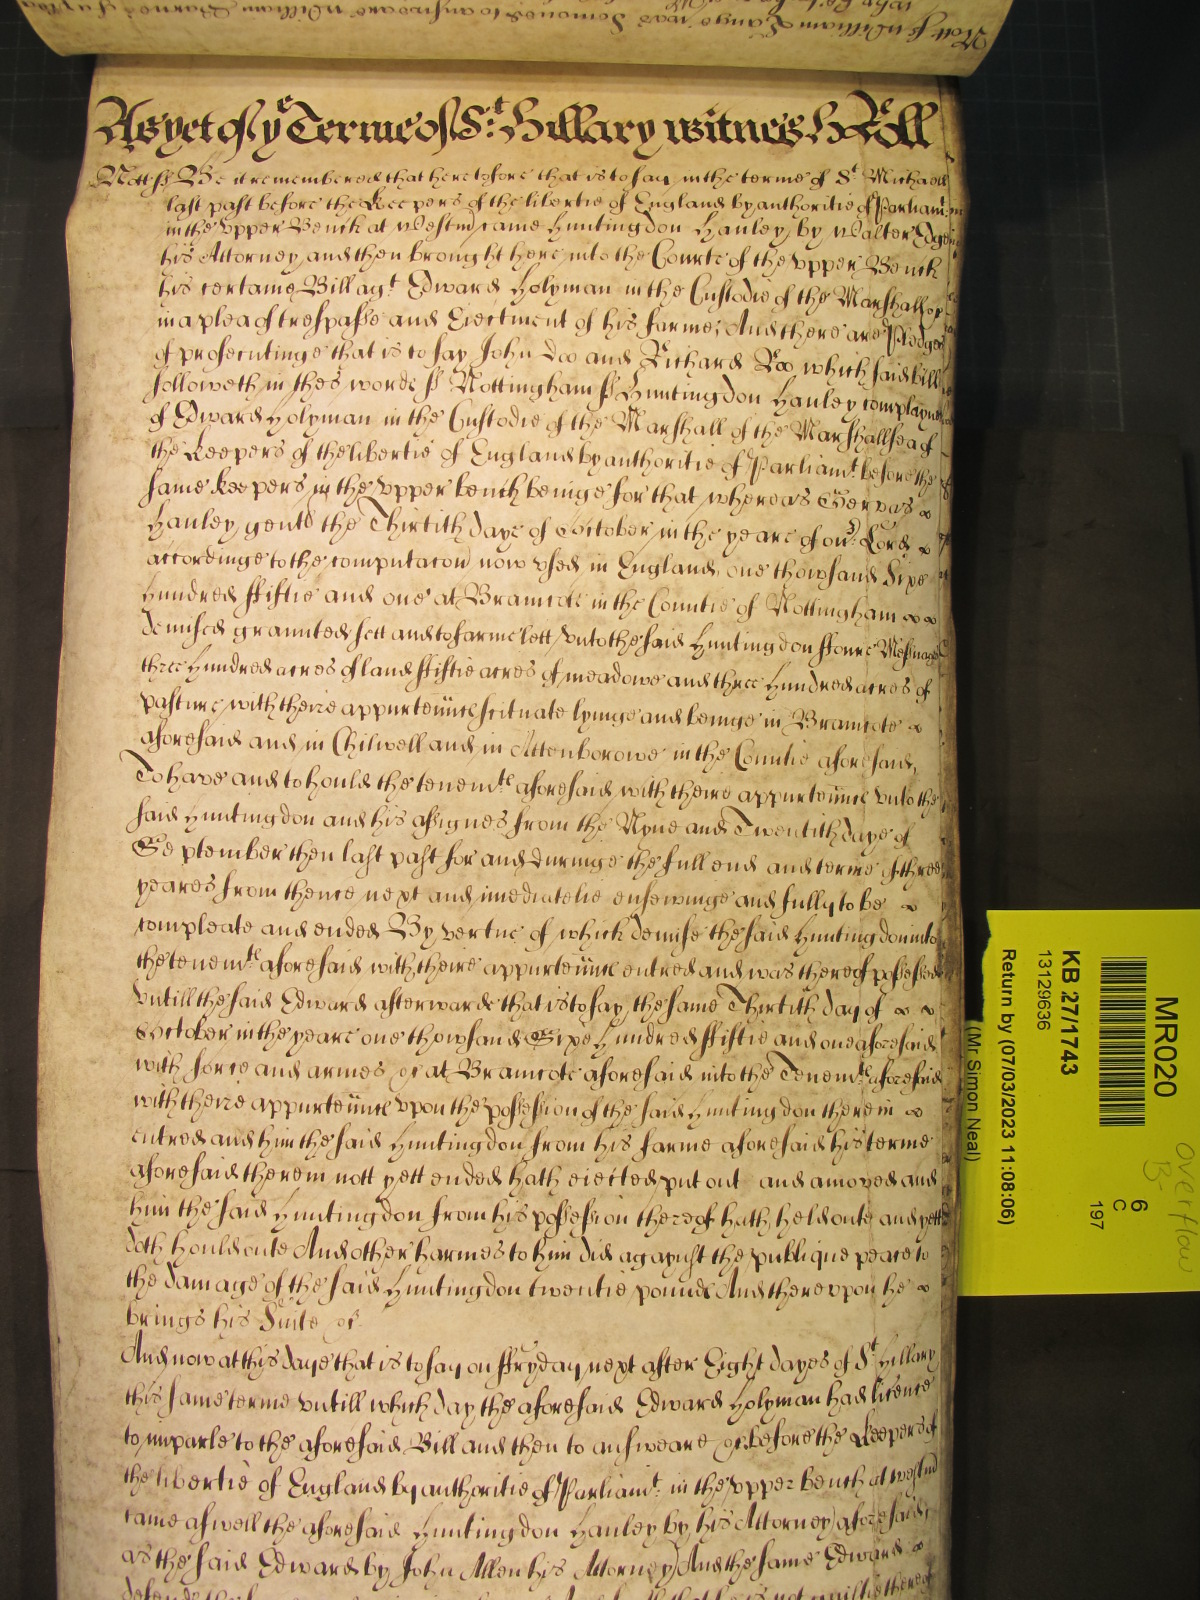 As yet of ye Terme of St: Hillary witnes H Roll
Nott ss Be it remembered that heretofore that is to say in the terme of St Michaell
last past before the Keepers of the libertie of England by authoritie of Parliamt:
in the Vpper Bench at Westm came Huntingdon Hanley by Walter
his Attorney and then brought here into the Courte of the vpper Bench
his certaine Bill agt Edward Holyman in the Custodie of the Marshall &c
in a plea of trespasse and Eiectment of his farme; And there are Pledges
of prosecutinge that is to say John Doo and Richard Roo which said bill
followeth in thes words ss Nottingham ss Huntingdon Hanley complayneth
of Edward Holyman in the Custodie of the Marshall of the Marshallsea of
the Keepers of the libertie of England by authoritie of Parliamt: before the
same keepers in the vpper bench beinge for that whereas Gervas
Hanley gent the Thirtith daye of October in the yeare of our: Lord
accordinge to the computacon now vsed in England one thowsand Sixe
Hundred ffiftie and one at Bramcote in the Countie of Nottingham
demised graunted sett and to farme lett vnto the said Huntingdon ffoure Messuages
three Hundred acres of land ffiftie acres of meadowe and three Hundred acres of
pasture with theire appurtennces scituate lyinge and beinge in Bramcote
aforesaid and in Chilwell and in Attenborowe in the Countie aforesaid,
To have and to hould the tenemts aforesaid with theire appurtennces vnto the
said Huntingdon and his assignes from the Nyne and Twentith daye of
September then last past for and duringe the full end and terme of three
yeares from thence next and imediatelie ensewinge and fully to be
compleate and ended By vertue of which demise the said Huntingdon into
the tenemts aforesaid with theire appurtennces entred and was thereof possessed
vntill the said Edward afterwards that is to say the same Thirtith day of
October in the yeare one thowsand Sixe Hundred ffiftie and one aforesaid
with force and armes &c at Bramcote aforesaid into the Tenemts aforesaid
with theire appurtennces vpon the possession of the said Huntingdon therein
entred and him the said Huntingdon from his farme aforesaid his terme
aforesaid therein nott yett ended hath eiected put out and amoved and
him the said Huntingdon from his possession thereof hath held oute and yett
doth hould oute And other harmes to him did against the publique peace to
the damage of the said Huntingdon twentie pounds And therevpon he
brings his Suite &c.
And now at this daye that is to say on ffryday next after Eight dayes of St Hillary
this same terme vntill which day the aforesaid Edward Holyman had licence
to imparle to the aforesaid Bill and then to answeare &c before the Keepers of
the libertie of England by authoritie of Parliamt: in the vpper bench at Westm
came aswell the aforesaid Huntingdon Hanley by his Attorney aforesaid,
as the said Edward by John Allen his Attorney And the same Edward
MR020
6
C
197
KB 27/1743
13129636
Return by (07/03/2023 11:08:06)
(Mr Simon Neal)
overflow
B-